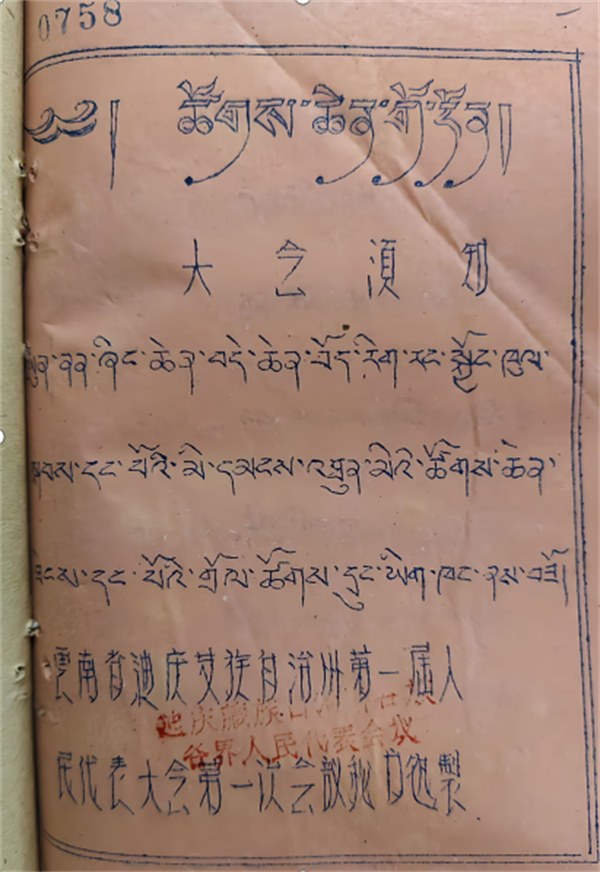 0758 一
༄༅། ཚོགས་ཆེན་
大会須知
ནན་ཞིང་ཆེན་བདེ་ཆེན་བོད་རིག་རང་སྐྱོང་ཁུལ་
དང་པོའི་མི་དམངས་ མིའི་ཚོགས་ཆེན་
དང་པོའི་གྲོལ་ཚོགས་དྲུང་ཡིག་ཁང་ནས་བཟོ།
雲南省迪庆 族自治州第一届人
迪庆藏族自
各界人民代表会议
民代表大会第一次会議秘书 製